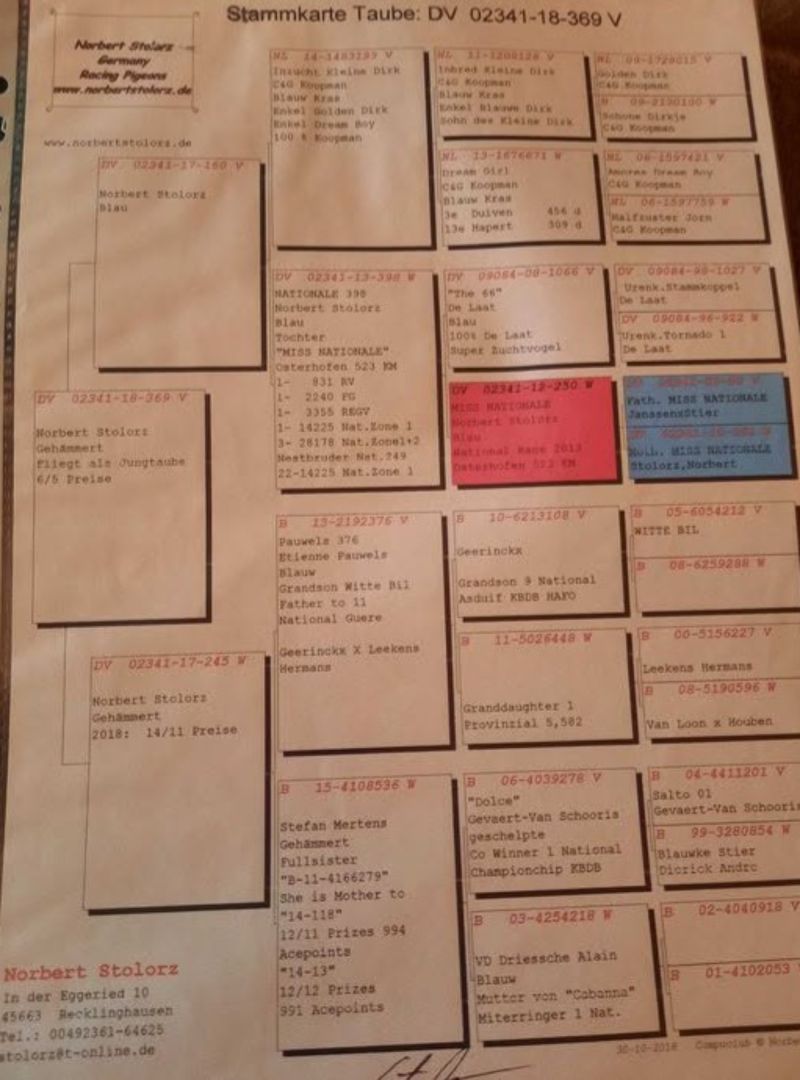 Stammkarte Taube: DV 02341-18-369 V
Norbert Stolorz
Germany
Racing Pigeons
www.norbertstolorz.de
www.norbertstolorz.de
DV 02341-18-369 V
Norbert Stolorz
Gehämmert
fliegt als Jungtaube
6/5 Preise
DV 02341-17-160 V
Norbert Stolorz
Blau
DV 02341-17-245 W
Norbert Stolorz
Gehämmert
2018: 14/11 Preise
NL 14-1483199 V
Inzucht Kleine Dirk
C&G Koopman
Blauw Kras
Enkel Golden Dirk
Enkel Dream Boy
100 % Koopman
DV 02341-13-398 W
NATIONALE 398
Norbert Stolorz
Blau
Tochter
"MISS NATIONALE"
Osterhofen 523 KM
1- 831 RV
1- 2240 FG
1- 3355 REGV
1- 14225 Nat.Zone 1
3- 28178 Nat.Zone1+2
Nestbruder Nat.249
22-14225 Nat.Zone 1
B 13-2192376 V
Pauwels 376
Etienne Pauwels
Blauw
Grandson Witte Bil
Father to 11
National Guere
Geerinckx X Leekens
Hermans
B 15-4108536 W
Stefan Mertens
Gehämmert
Fullsister
"B-11-4166279"
She is Mother to
"14-118"
12/11 Prizes 994
Acepoints
"14-13"
12/12 Prizes
991 Acepoints
NL 11-1208128 V
Inbred Kleine Dirk
C&G Koopman
Blauw Kras
Enkel Blauwe Dirk
Sohn des Kleine Dirk
NL 13-1676671 W
Dream Girl
C&G Koopman
Blauw Kras
3e Duiven 456 d
13e Hapert 309 d
DV 09084-08-1066 V
"The 66"
De Laat
Blau
100% De Laat
Super Zuchtvogel
DV 02341-12-250 W
MISS NATIONALE
Norbert Stolorz
Blau
National Rang 2013
Osterhofen 523 KM
B 10-6213108 V
Geerinckx
Grandson 9 National
Asduif KBDB HAFO
B 11-5026448 W
Granddaughter 1
Provinzial 5,582
B 06-4039278 V
"Dolce"
Gevaert-Van Schooris
geschelpte
Co Winner 1 National
Championchip KBDB
B 03-4254218 W
VD Driessche Alain
Blauw
Mutter von "Cabanna"
Miterringer 1 Nat.
NL 09-1729015 V
Golden Dirk
C&G Koopman
B 09-2190100 W
Schone Dirkje
C&G Koopman
NL 06-1597421 V
Amores Dream Boy
C&G Koopman
NL 06-1597759 W
Halfzuster Jorn
C&G Koopman
DV 09084-98-1027 V
Urenk.Stammkoppel
De Laat
DV 09084-96-922 W
Urenk.Tornado 1
De Laat
Path. MISS NATIONALE
Janssenstier
Moth. MISS NATIONALE
Stolorz,Norbert
B 05-6054212 V
WITTE BIL
B 08-6259288 W
B 00-5156227 V
Leekens Hermans
B 08-5190596 W
Van Loon x Houben
B 04-4411201 V
Salto 01
Gevaert-Van Schooris
B 99-3280854 W
Blauwke Stier
Dierick Andre
B 02-4040918 V
B 01-4102053
Norbert Stolorz
In der Eggeried 10
45663 Recklinghausen
Tel.: 00492361-64625
stolorz@t-online.de
30-10-2018 Compuclub © Norbe